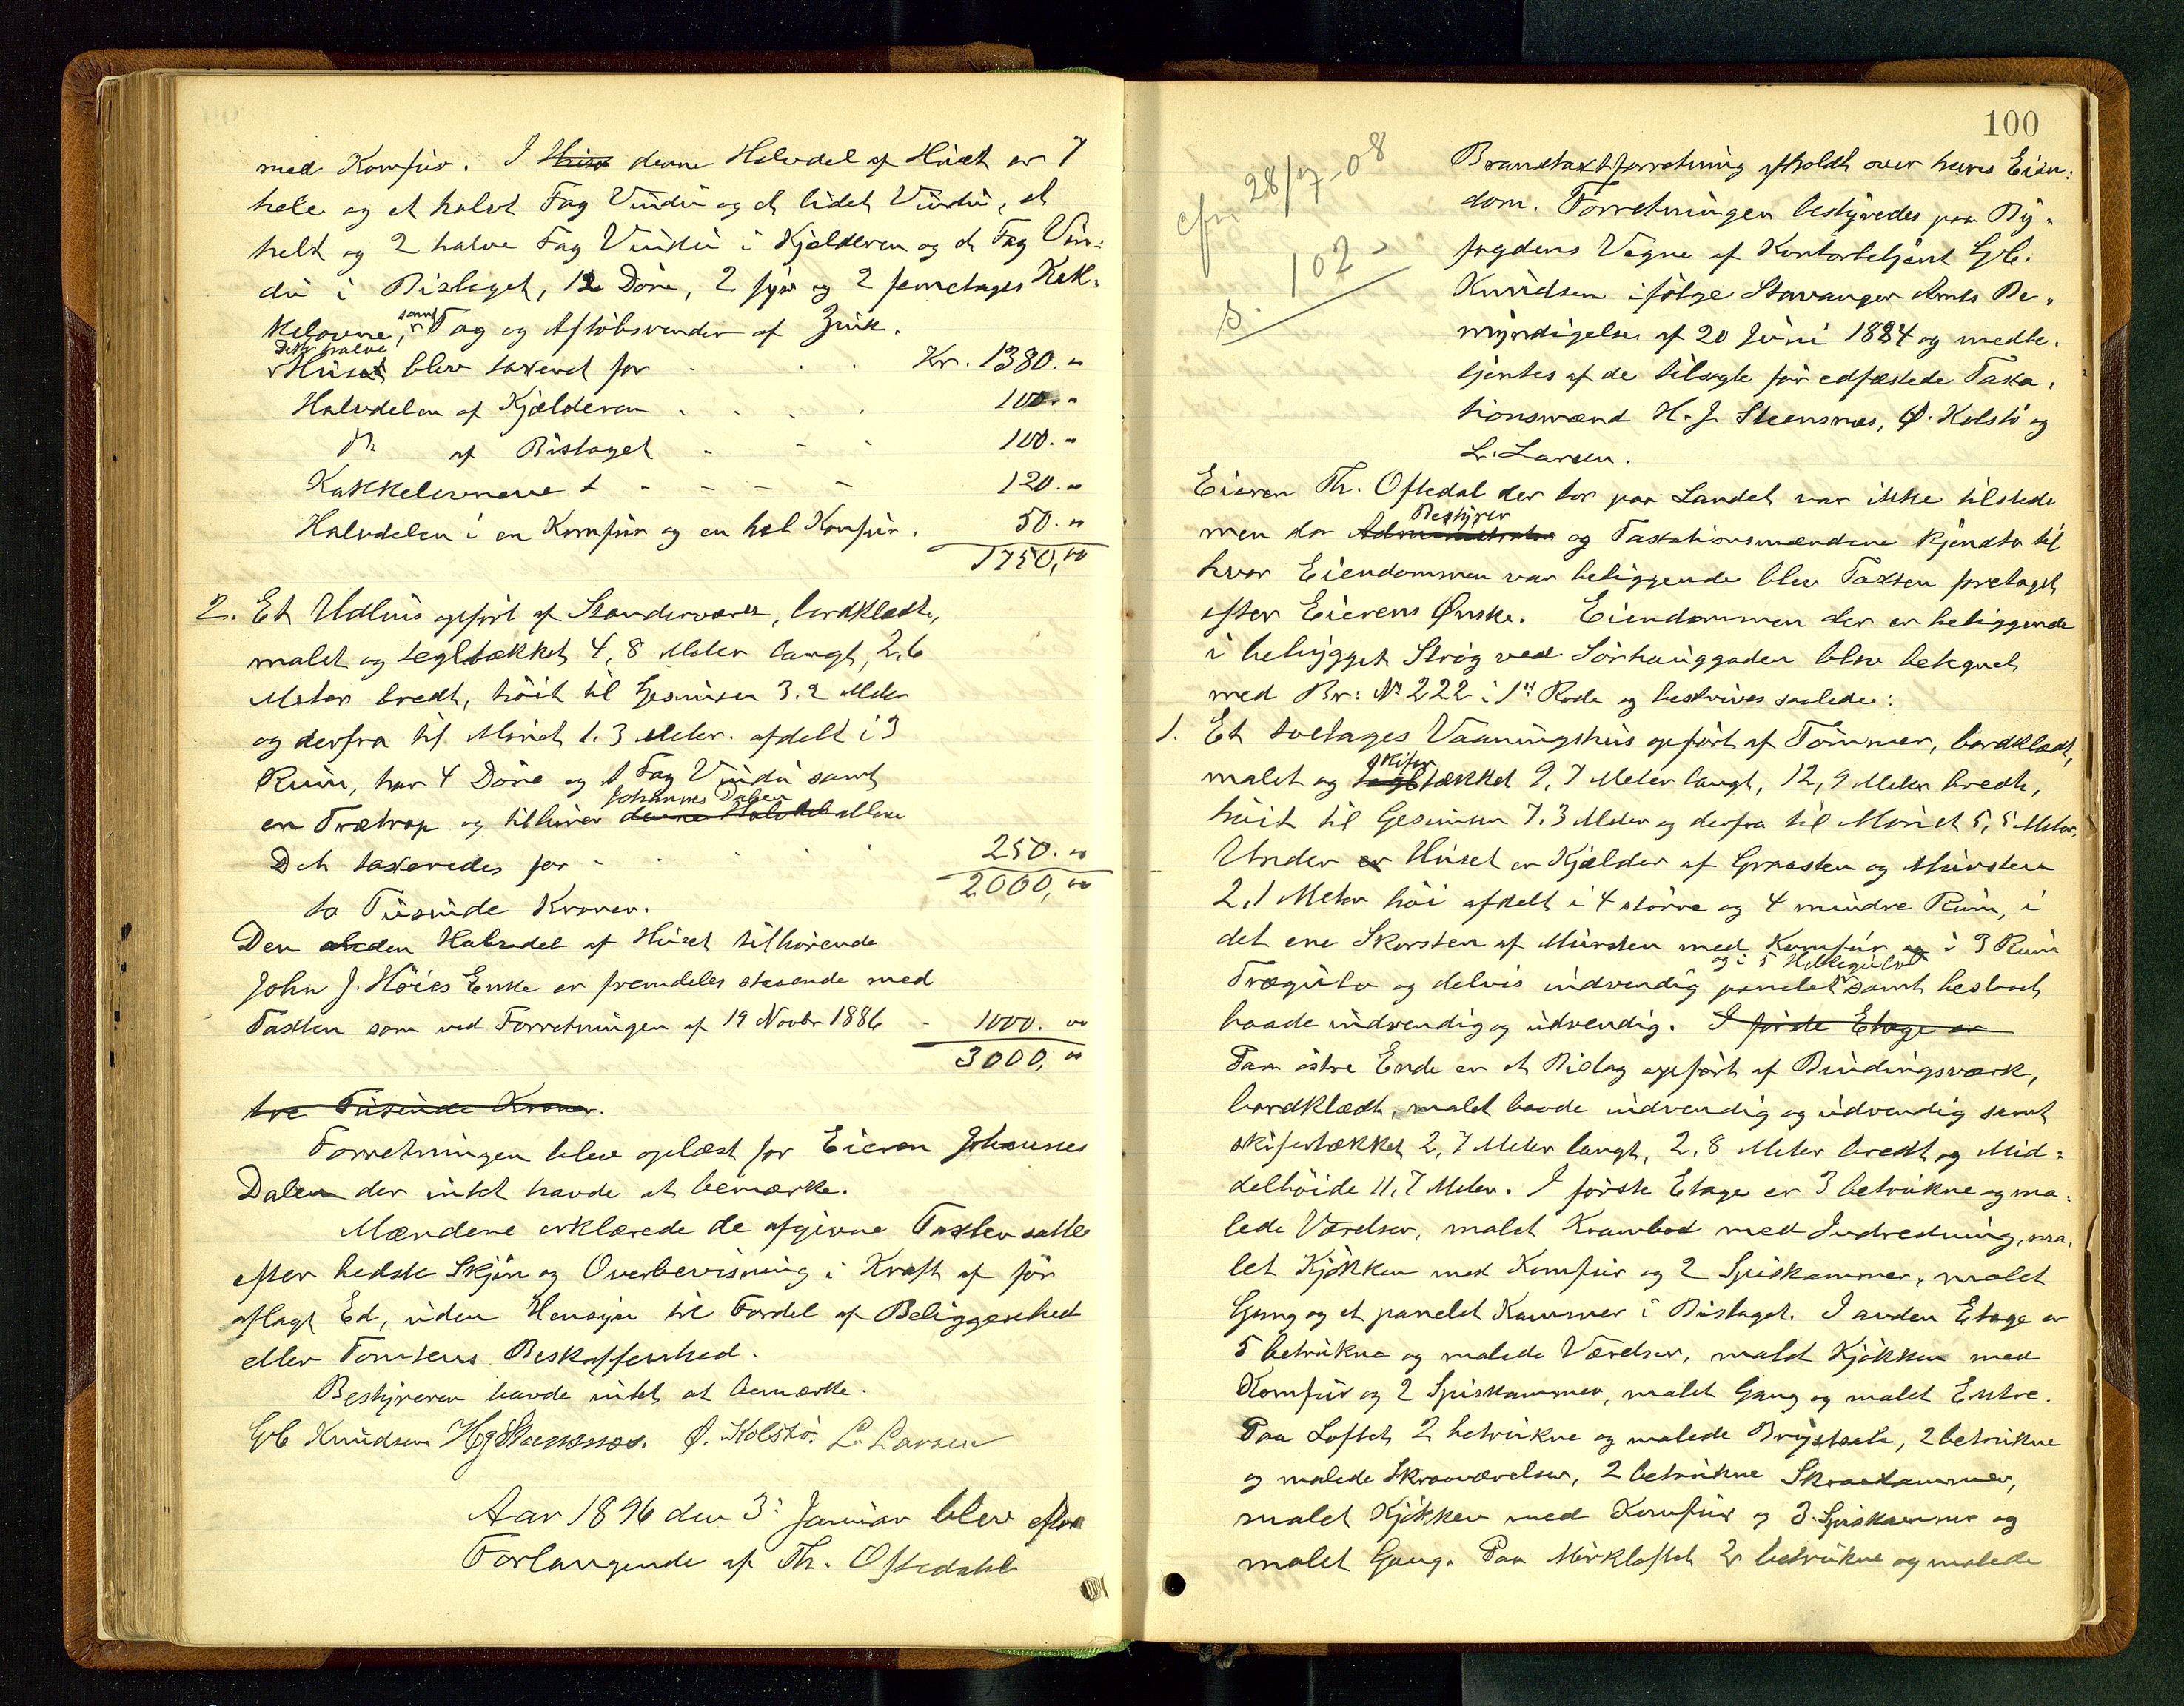 med Komfür. I Huset denne Halvdel af Huset er 7
hele og et halvt Fag Vindu og et lidet Vindu, et
helt og 2 halve Fag Vindu i Kjelderen og et Fag Vin-
du i Bislaget, 12 Døre, 2 fyr og 2 fleretages Kak-
kelovne, samt Tag og Afløbsrender af Zink.
Dette halve
Huset blev taxeret for Kr. 1380.00
Halvdelen af Kjælderen 100.00
Do af Bislaget 100.00
Kakkelovnene 120.00
Halvdelen i en Komfür og en hel Komfür. 50.00
1750,00
2. Et Udhus opført af Standerværk, bordklædt,
malet og tegltækket 4,8 Meter langt, 2,6
Meter bredt, høit til Gesimsen 3.2 Meter
og derfra til Mønet 1.3 Meter. afdelt i 3
Rum, har 4 Døre og 1 Fag Vindu samt
Johannes Dalen
en Trætrap og tilhører denne Halvdel allene
Det taxeredes for 250.00
2000,00
to Tusinde Kroner.
Den anden Halvdel af Huset tilhørende
John J. Höies Enke er fremdeles staaende med
Taxten som ved Forretningen af 19 Novbr 1886 - 1000.00
3000,00
tre Tusinde Kroner.
Forretningen blev oplæst for Eieren Johannes
Dalen der intet havde at bemærke.
Mændene erklærede de afgivne Taxter satte
efter bedste Skjøn og Overbevisning i Kraft af før
aflagt Ed, uden Hensyn til Fordel af Beliggenhed
eller Tomtens Beskaffenhed.
Bestyreren havde intet at bemærke.
Gb Knudsen HJSteensnæs. Ø. Kolstø. L. Larsen
Aar 1896 den 3. Januar blev efter
Forlangende af Th. Oftedahl
100
cfr. 28/7-08
s. 102
Brandtaxtforretning afholdt over hans Eien-
dom. Forretningen bestyredes paa By-
fogdens Vegne af Kontorbetjent Gb.
Knudsen ifølge Stavanger Amts Be-
myndigelse af 20 Juni 1884 og medbe-
tjentes af de tilsagte før edfæstede Taxa-
tionsmænd H. J. Steensnæs, Ø. Kolstø og
L. Larsen.
Eieren Th. Oftedal der bor paa Landet var ikke tilstede
Bestyrer
men da Administrator og Taxationsmændene kjendte til
hvor Eiendommen var beliggende blev Taxten foretaget
efter Eierens Ønske. Eiendommen der er beliggende
i bebygget Strøg ved Sørhauggaden blev betegnet
med Br: No 222 i 1ste Rode og beskrives saaledes:
1. Et toetages Vaaningshus opført af Tømmer, bordklædt,
skifer
malet og tegltækket 9,7 Meter langt, 12,9 Meter bredt,
høit til Gesimsen 7.3 Meter og derfra til Mønet 5,5 Meter.
Under er Huset er Kjælder af Graasten og Mursten
2,1 Meter høi afdelt i 4 større og 4 mindre Rum, i
det ene Skorsten af Mursten med Komfür og i 3 Rum
og i 5 Hellegulv
Trægulv og delvis indvendig panelet samt beslaaet
baade indvendig og udvendig. I første Etage er
Paa østre Ende er et Bislag opført af Bindingsværk,
bordklædt, malet baade indvendig og udvendig samt
skifertækket 2,7 Meter langt, 2,8 Meter bredt og Mid-
delhøide 11,7 Meter. I første Etage er 3 betrukne og ma-
lede Værelser, malet Krambod med Indredning, ma-
let Kjøkken med Komfür og 2 Spiskammer, malet
Gang og et panelet Kammer i Bislaget. I anden Etage er
5 betrukne og malede Værelser, malet Kjøkken med
Komfür og 2 Spiskammer, malet Gang og malet Entre.
Paa Loftet 2 betrukne og malede Brystsale, 2 betrukne
og malede Skraaværelser, 2 betrukne Skraakammer,
malet Kjøkken med Komfür og 3 Spiskammer og
malet Gang. Paa Mørkloftet 2 betrukne og malede